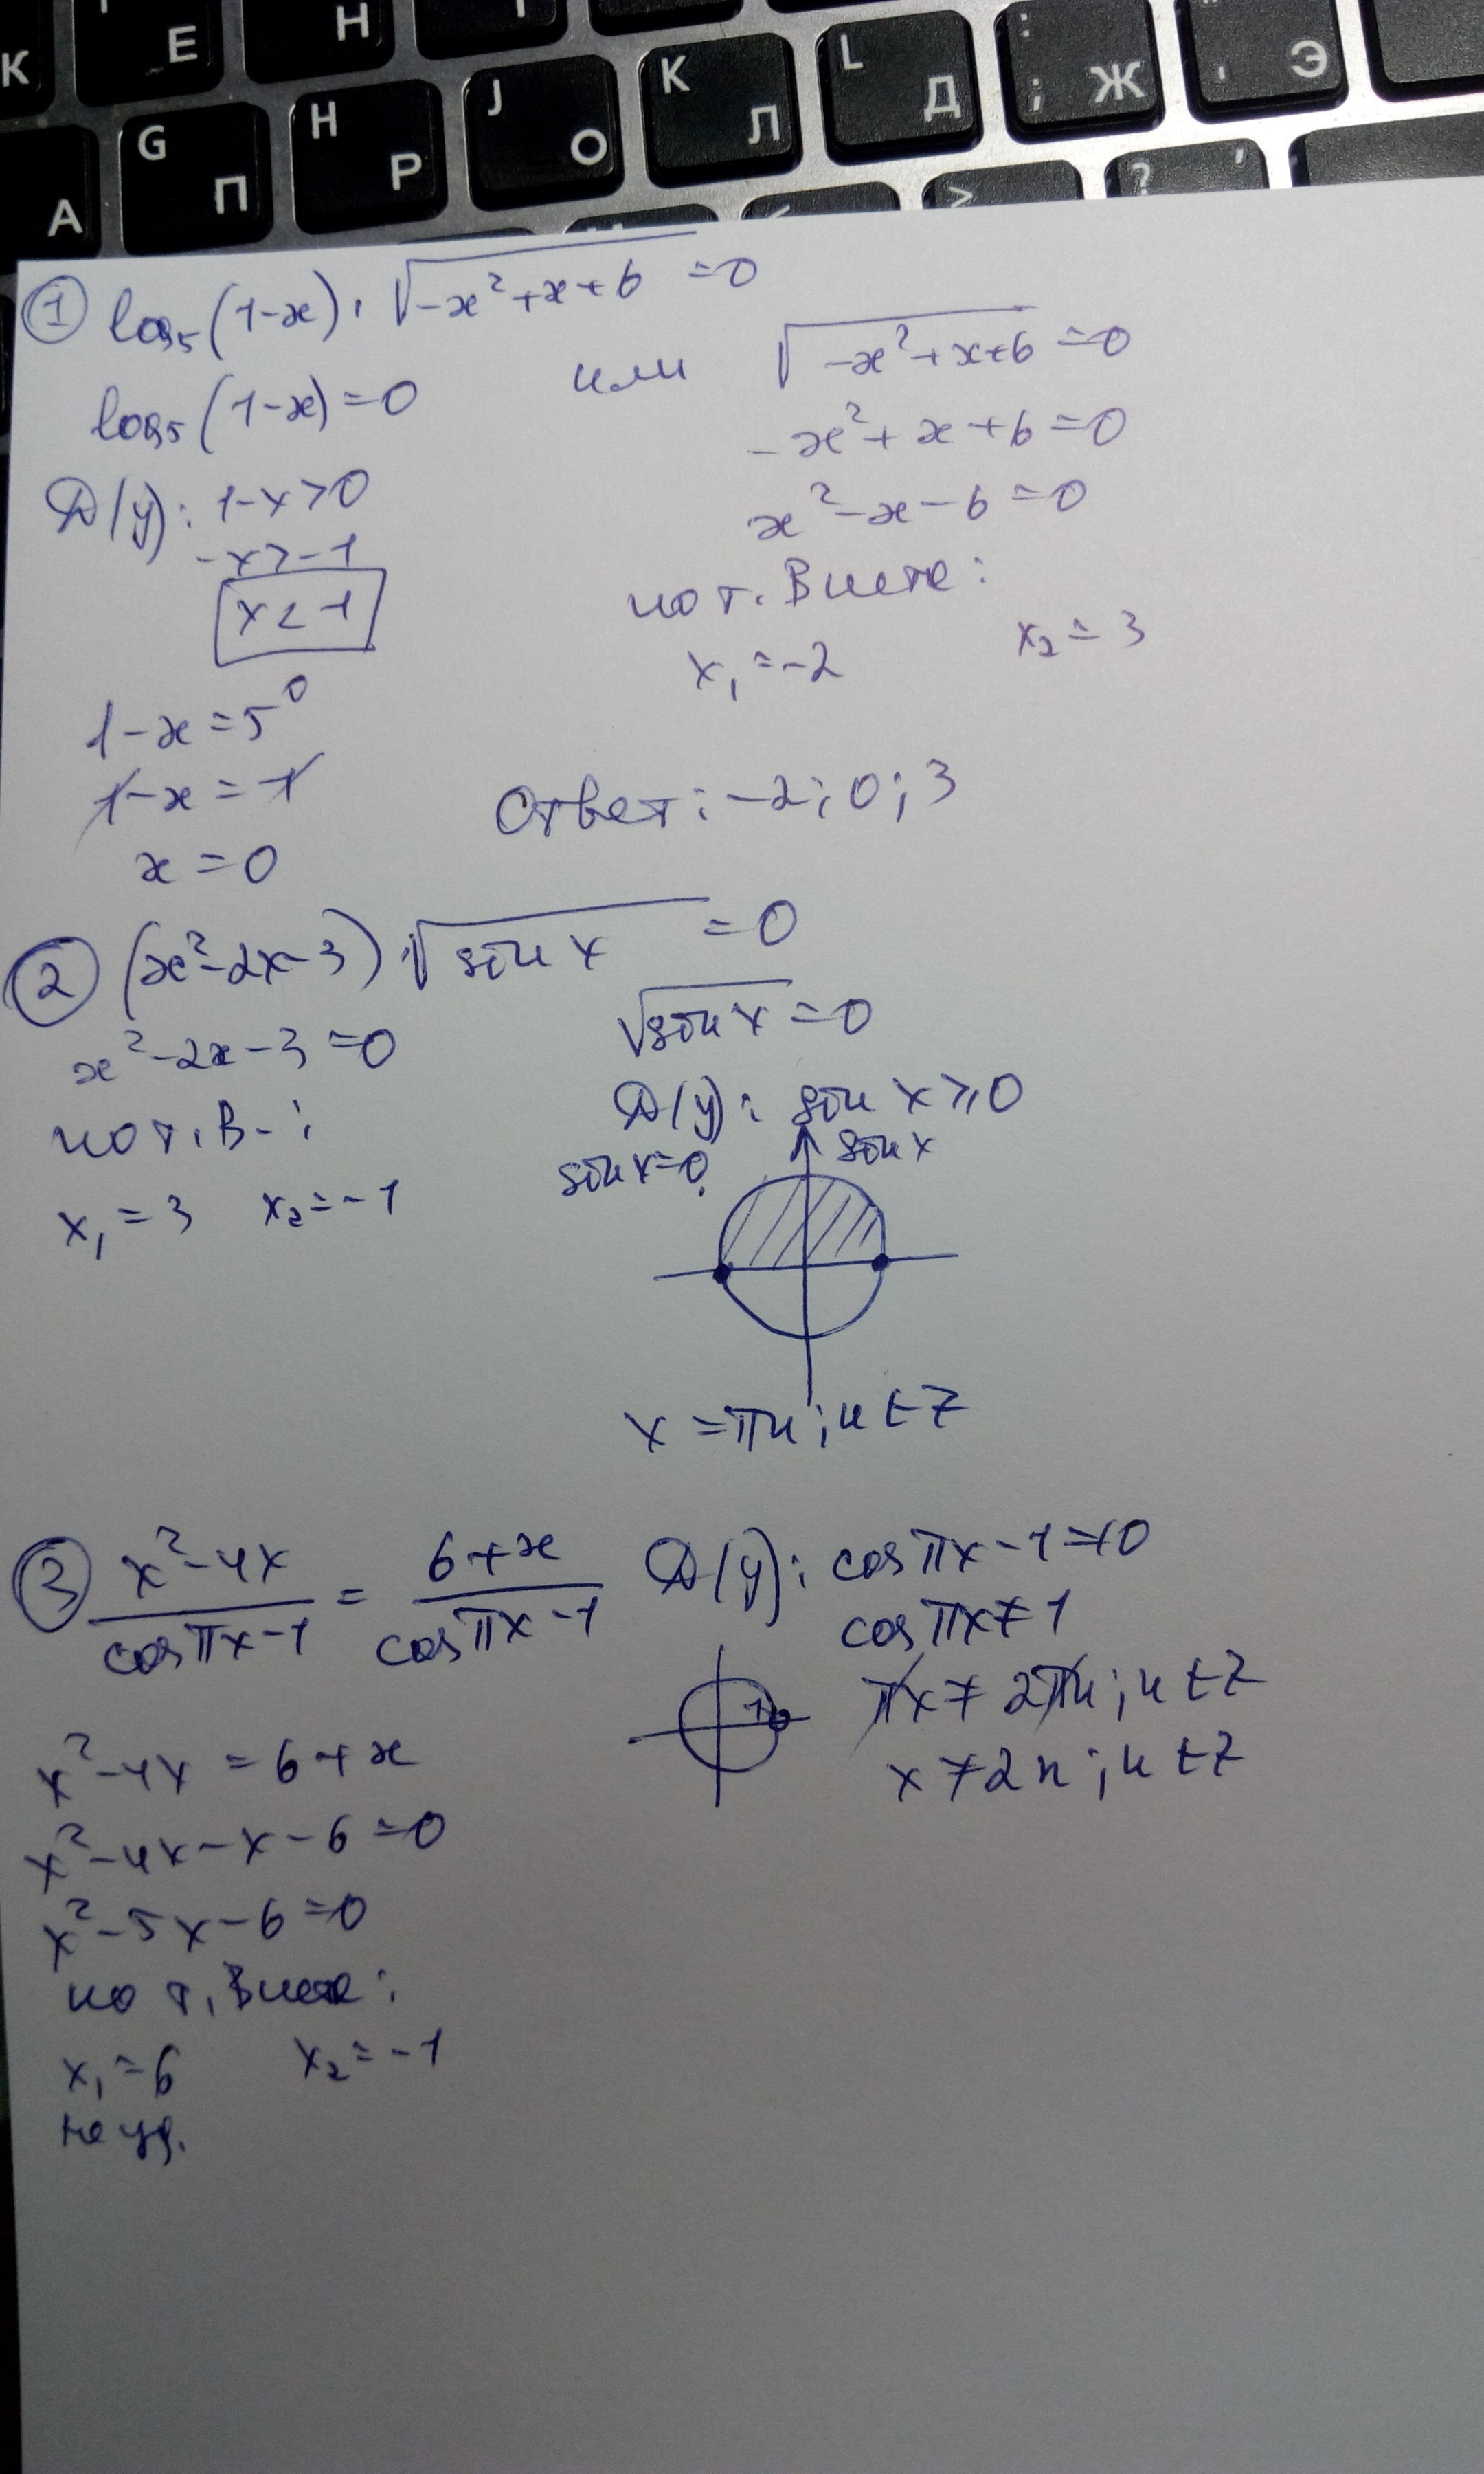 К Е Н
А G П H Р J О K Л L Д : ; Ж Э
< > ? ,
① log₅(1-x) · √(-x²+x+6) = 0
log₅(1-x) = 0 или √(-x²+x+6) = 0
-x²+x+6=0
D(y): 1-x>0
x²-x-6=0
-x>-1
x<1
по т. Виета:
x₁=-2 x₂=3
1-x=5⁰
1-x=1
Ответ: -2; 0; 3
x=0
② (x²-2x-3) · √(sin x) = 0
x²-2x-3=0 √(sin x) = 0
по т. В-:
D(y): sin x ⩾ 0
sin x=0 sin x
x₁=3 x₂=-1
x=πn; n∈Z
③ (x²-4x)/(cosπx-1) = (6+x)/(cosπx-1) D(y): cosπx-1≠0
cosπx≠1
1
πx≠2πn; n∈Z
x²-4x=6+x
x≠2n; n∈Z
x²-4x-x-6=0
x²-5x-6=0
по т. Виета:
x₁=6 x₂=-1
не уд.